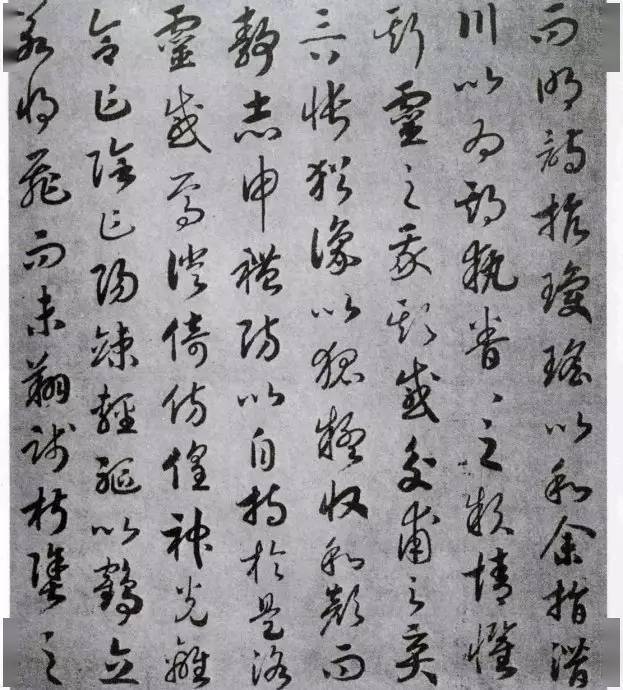 而明詩抗瓊瑤以和余指潛
川以為期執眷々之款情懼
斯靈之我欺感交甫之棄
言悵猶豫以狐疑收和顏而
靜志申禮防以自持於是洛
靈感焉徙倚仿偟神光離
合乍陰乍陽竦輕軀以鶴立
若將飛而未翔踐椒塗之